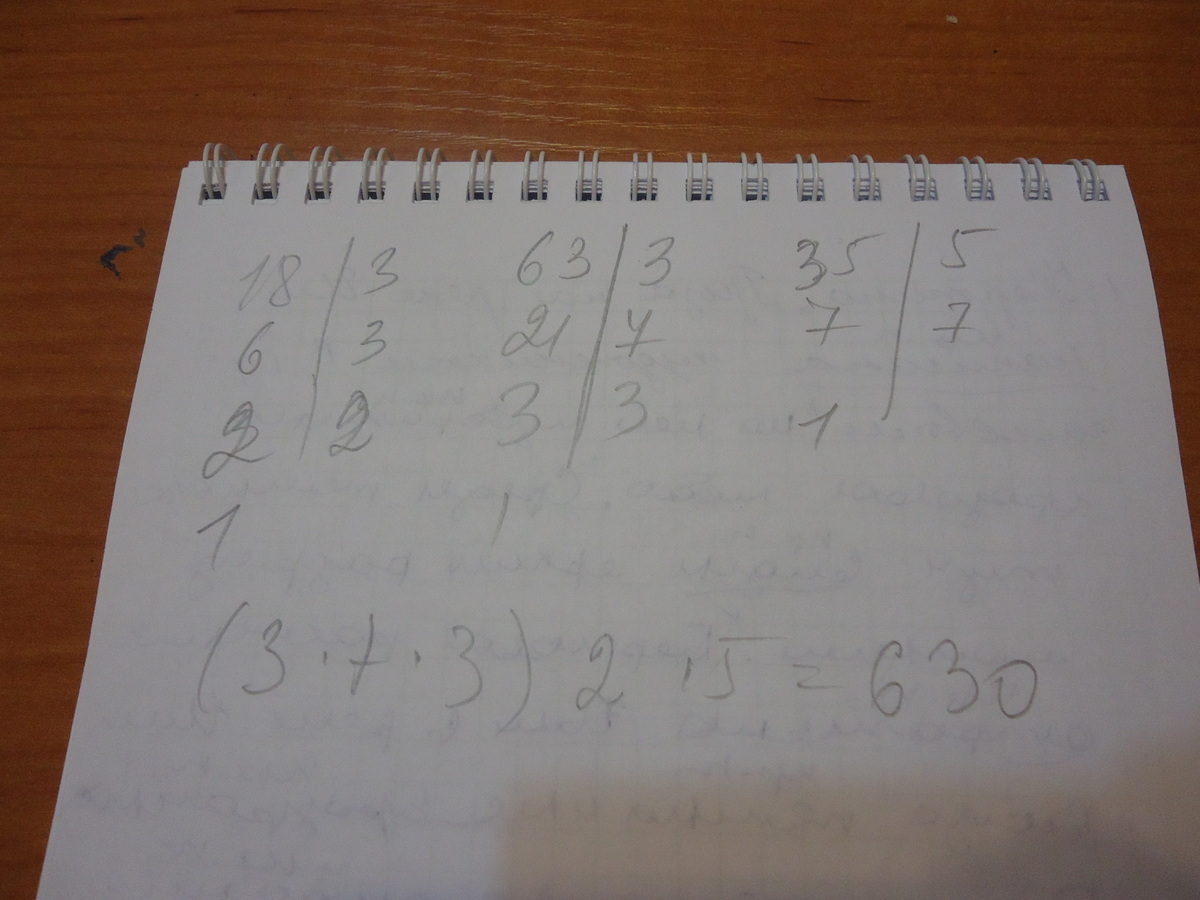 18 | 3 63 | 3 35 | 5
6 | 3 21 | 7 7 | 7
2 | 2 3 | 3 1
1 1
(3 · 7 · 3) 2 · 5 = 630